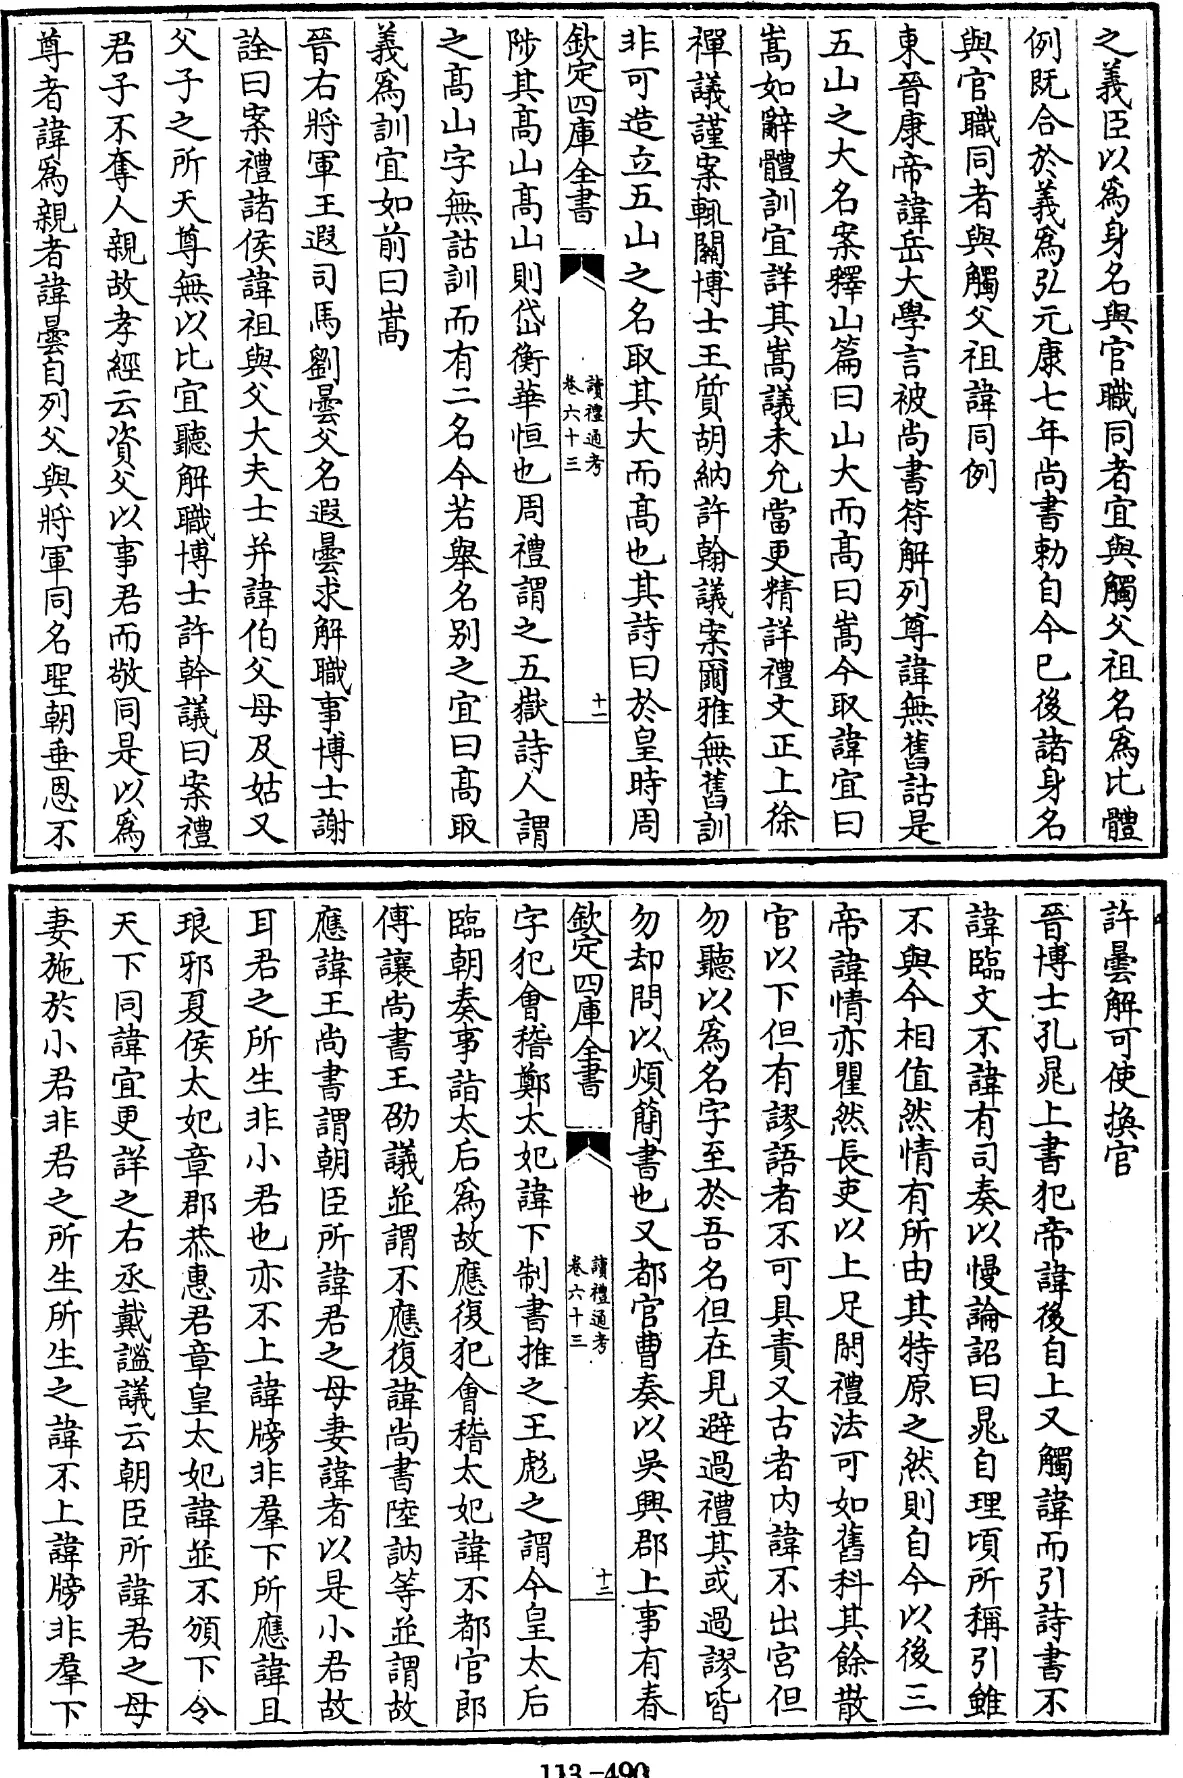 之義臣以爲身名與官職同者宜與觸父祖名爲比體
例既合於義爲弘元康七年尚書勅自今已後諸身名
與官職同者與觸父祖諱同例
東晉康帝諱岳大學言被尚書符解列尊諱無舊詁是
五山之大名案釋山篇曰山大而高曰嵩今取諱宜曰
嵩如辭體訓宜詳其嵩議未允當更精詳禮文正上徐
禪議謹案輒關博士王質胡納許翰議案爾雅無舊訓
非可造立五山之名取其大而高也其詩曰於皇時周
欽定四庫全書
讀禮通考
卷六十三
十一
陟其高山高山則岱衡華恒也周禮謂之五嶽詩人謂
之高山字無詁訓而有二名今若舉名别之宜曰高取
義爲訓宜如前曰嵩
晉右將軍王遐司馬劉曇父名遐曇求解職事博士謝
詮曰案禮諸侯諱祖與父大夫士并諱伯父母及姑又
父子之所天尊無以比宜聽解職博士許幹議曰案禮
君子不奪人親故孝經云資父以事君而敬同是以爲
尊者諱爲親者諱曇自列父與將軍同名聖朝垂恩不
許曇解可使換官
晉博士孔晁上書犯帝諱後自上又觸諱而引詩書不
諱臨文不諱有司奏以慢論詔曰晁自理頃所稱引雖
不與今相值然情有所由其特原之然則自今以後三
帝諱情亦瞿然長吏以上足閑禮法可如舊科其餘散
官以下但有謬語者不可具責又古者内諱不出宫但
勿聽以爲名字至於吾名但在見避過禮其或過謬皆
勿却問以煩簡書也又都官曹奏以吳興郡上事有春
欽定四庫全書
讀禮通考
卷六十三
十二
字犯會稽鄭太妃諱下制書推之王彪之謂今皇太后
臨朝奏事詣太后爲故應復犯會稽太妃諱不都官郎
傅讓尚書王劭議並謂不應復諱尚書陸訥等並謂故
應諱王尚書謂朝臣所諱君之母妻諱者以是小君故
耳君之所生非小君也亦不上諱牓非羣下所應諱且
琅邪夏侯太妃章郡恭惠君章皇太妃諱並不頒下令
天下同諱宜更詳之右丞戴謐議云朝臣所諱君之母
妻施於小君非君之所生所生之諱不上諱牓非羣下
113-490